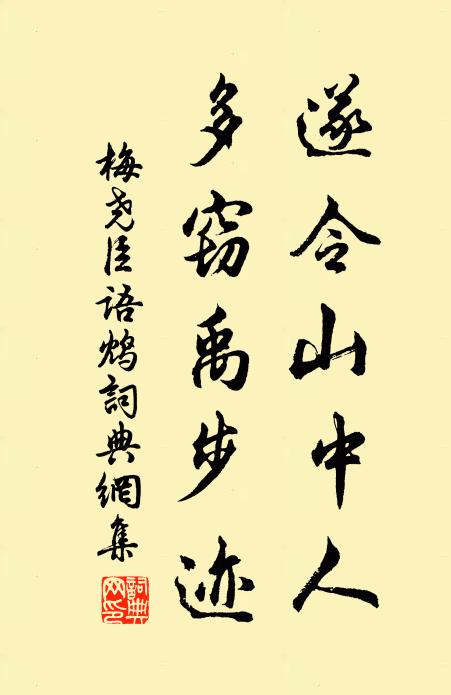 遂令山中人
多窃禹步迹
梅尧臣语鸩詞典網集
詞典網印